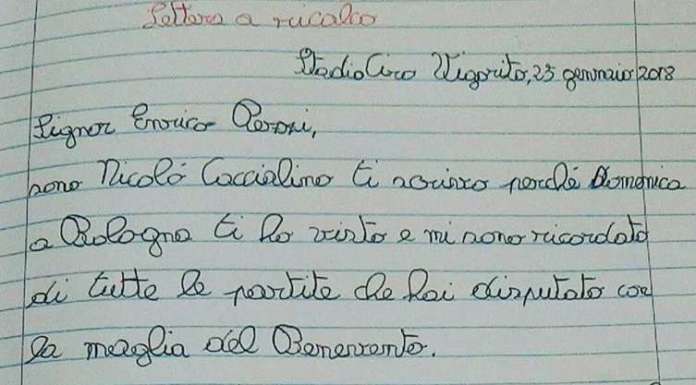 Lettera a ricalco
Stadio Ciro Vigorito, 23 gennaio 2018
Signor Enrico Peroni,
sono Nicoló Caccialino ti scrivo perché Domenica
a Bologna ti ho visto e mi sono ricordato
di tutte le partite che hai disputato con
la maglia del Benevento.